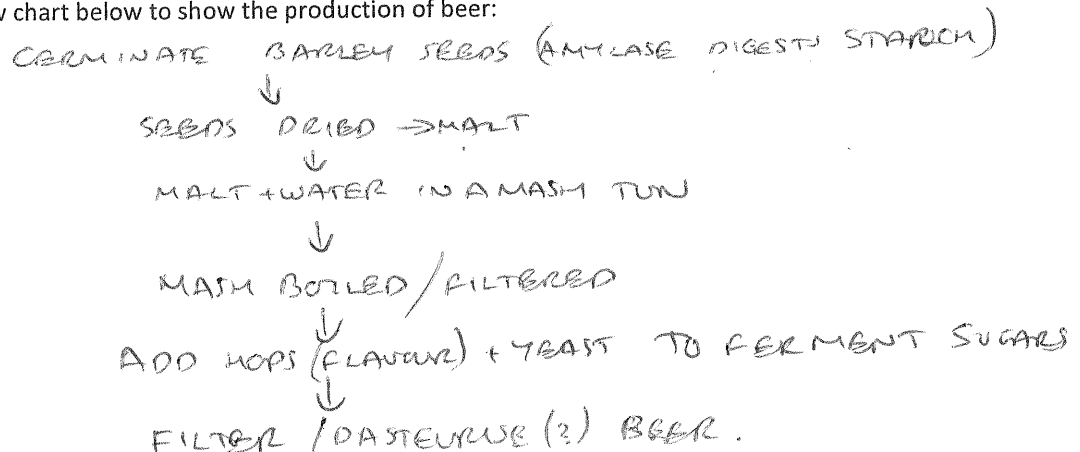 w chart below to show the production of beer:
GERMINATE BARLEY SEEDS (AMYLASE DIGESTS STARCH)
↓
SEEDS DRIED → MALT
↓
MALT + WATER IN A MASH TUN
↓
MASH BOILED / FILTERED
↓
ADD HOPS (FLAVOUR) + YEAST TO FERMENT SUGARS
↓
FILTER / PASTEURISE (?) BEER.